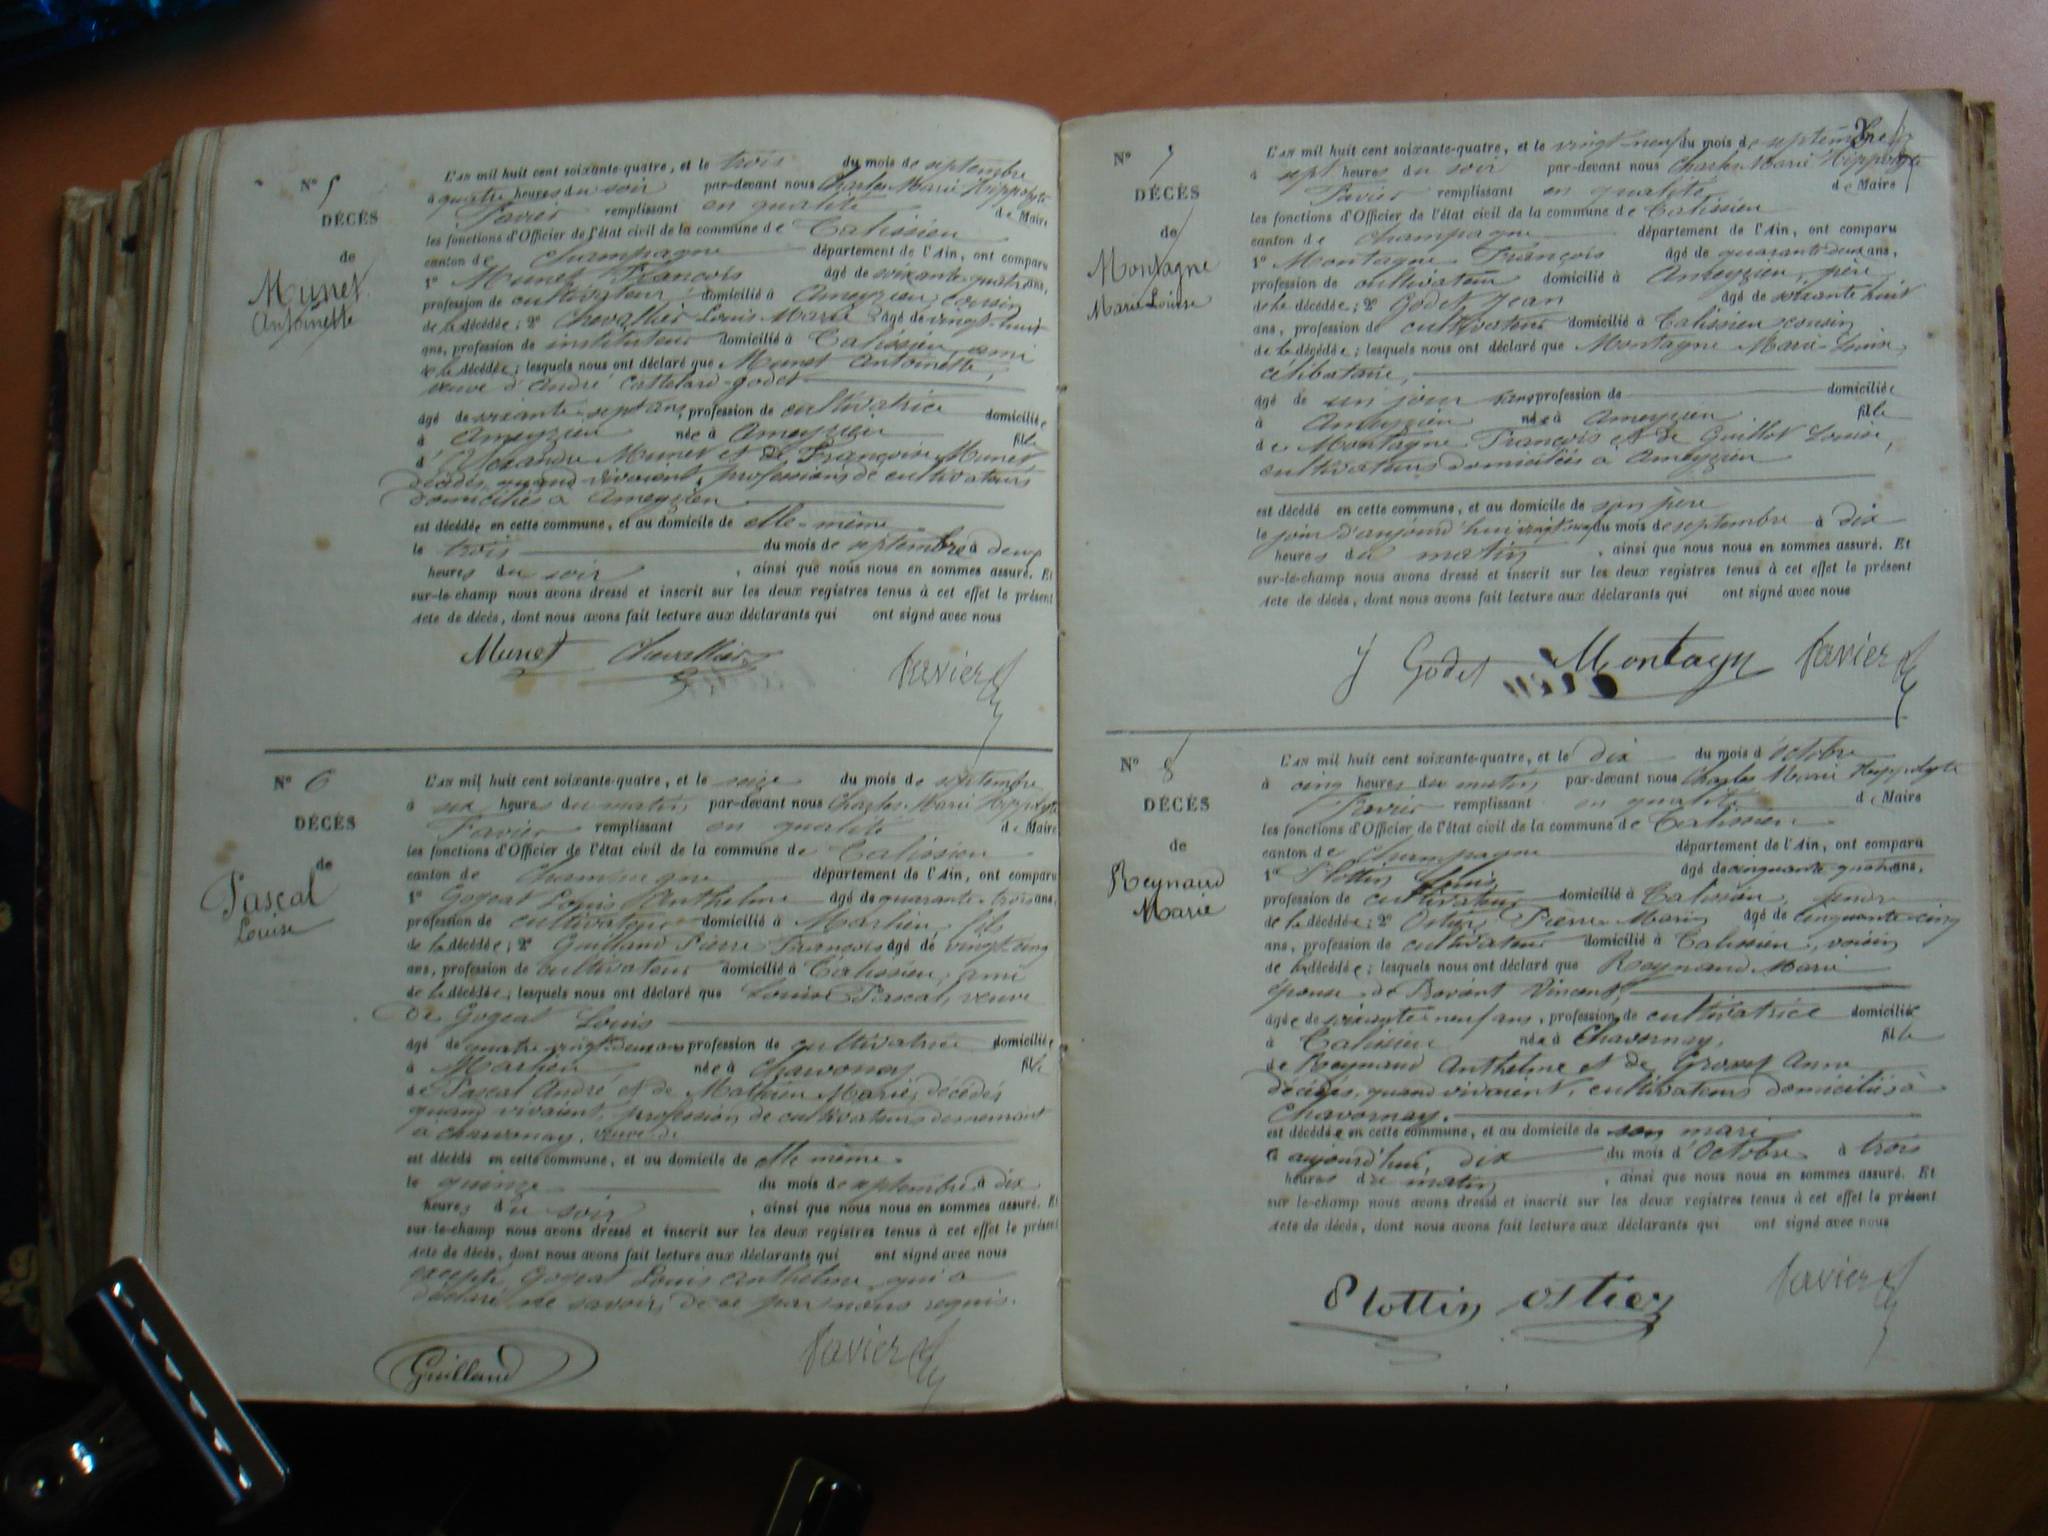 N° 5
DÉCÈS
de
Munet
Antoinette
L'AN mil huit cent soixante-quatre, et le trois du mois de septembre
à quatre heures du soir par-devant nous Charles Marie Hippolyte
Favier remplissant en qualité de Maire
les fonctions d'Officier de l'état civil de la commune de Talissieu
canton de Champagne département de l'Ain, ont comparu
1° Munet François âgé de soixante-quatre ans,
profession de cultivateur domicilié à Ameyzieu, cousin
de la décédée; 2° Chevallier Louis Marie âgé de vingt-huit
ans, profession de instituteur domicilié à Talissieu, ami
de la décédée; lesquels nous ont déclaré que Munet Antoinette,
veuve d'André Castelard-Godet
âgé de soixante-sept ans, profession de cultivatrice domiciliée
à Ameyzieu née à Ameyzieu fille
d' Munet et de Françoise Munet
décédés, quand vivaient, professions de cultivateurs
domiciliés à Ameyzieu
est décédée en cette commune, et au domicile de elle-même
le trois du mois de septembre à deux
heures du soir, ainsi que nous nous en sommes assuré. Et
sur-le-champ nous avons dressé et inscrit sur les deux registres tenus à cet effet le présent
Acte de décès, dont nous avons fait lecture aux déclarants qui ont signé avec nous
Munet Chevallier Favier
N° 6
DÉCÈS
de
Pascal
Louise
L'AN mil huit cent soixante-quatre, et le seize du mois de septembre
à six heures du matin par-devant nous Charles Marie Hippolyte
Favier remplissant en qualité de Maire
les fonctions d'Officier de l'état civil de la commune de Talissieu
canton de Champagne département de l'Ain, ont comparu
1° Gogeat Louis Anthelme âgé de quarante-trois ans,
profession de cultivateur domicilié à Marlieu, fils
de la décédée; 2° Guilland Pierre François âgé de vingt-cinq
ans, profession de cultivateur domicilié à Talissieu, ami
de la décédée; lesquels nous ont déclaré que Louise Pascal, veuve
de Gogeat Louis
âgé de quatre-vingt-deux ans profession de cultivatrice domiciliée
à Marlieu, née à Chavornay fille
de Pascal André et de Mathieu Marie, décédés
quand vivaient, profession de cultivateurs demeurant
à Chavornay, veuve de
est décédé en cette commune, et au domicile de elle même
le quinze du mois de septembre à dix
heures du soir, ainsi que nous nous en sommes assuré. Et
sur-le-champ nous avons dressé et inscrit sur les deux registres tenus à cet effet le présent
Acte de décès, dont nous avons fait lecture aux déclarants qui ont signé avec nous
excepté Gogeat Louis Anthelme qui a
déclaré ne savoir, de ce par nous requis.
Guilland Favier
N° 7
DÉCÈS
de
Montagne
Marie Louise
L'AN mil huit cent soixante-quatre, et le vingt-neuf du mois de septembre
à sept heures du soir par-devant nous Charles Marie Hippolyte
Favier remplissant en qualité de Maire
les fonctions d'Officier de l'état civil de la commune de Talissieu
canton de Champagne département de l'Ain, ont comparu
1° Montagne François âgé de quarante-deux ans,
profession de cultivateur domicilié à Ameyzieu, père
de la décédée; 2° Godet Jean âgé de soixante huit
ans, profession de cultivateur domicilié à Talissieu, cousin
de la décédée; lesquels nous ont déclaré que Montagne Marie-Louise,
célibataire,
âgé de un jour sans profession de domiciliée
à Ameyzieu née à Ameyzieu fille
de Montagne François et de Guillot Louise,
cultivateurs domiciliés à Ameyzieu
est décédé en cette commune, et au domicile de son père
le jour d'aujourd'hui vingt neuf du mois de septembre à dix
heures du matin, ainsi que nous nous en sommes assuré. Et
sur-le-champ nous avons dressé et inscrit sur les deux registres tenus à cet effet le présent
Acte de décès, dont nous avons fait lecture aux déclarants qui ont signé avec nous
J Godet Montagn Favier
N° 8
DÉCÈS
de
Reynaud
Marie
L'AN mil huit cent soixante-quatre, et le dix du mois d'octobre
à cinq heures du matin par-devant nous Charles Marie Hippolyte
Favier remplissant en qualité de Maire
les fonctions d'Officier de l'état civil de la commune de Talissieu
canton de Champagne département de l'Ain, ont comparu
1° Plottin Louis, âgé de cinquante quatre ans,
profession de cultivateur domicilié à Talissieu, gendre
de la décédée; 2° Ostier Pierre Marin âgé de cinquante-cinq
ans, profession de cultivateur domicilié à Talissieu, voisin
de la décédée; lesquels nous ont déclaré que Reynaud Marie
épouse de Ravant Vincent,
âgée de soixante-neuf ans, profession de cultivatrice domiciliée
à Talissieu née à Chavornay, fille
de Reynaud Anthelme et de Grosset Anne
décédés, quand vivaient, cultivateurs domiciliés à
Chavornay.
est décédée en cette commune, et au domicile de son mari
le aujourd'hui, dix du mois d'Octobre à trois
heures du matin, ainsi que nous nous en sommes assuré. Et
sur-le-champ nous avons dressé et inscrit sur les deux registres tenus à cet effet le présent
Acte de décès, dont nous avons fait lecture aux déclarants qui ont signé avec nous
Plottin Ostier Favier